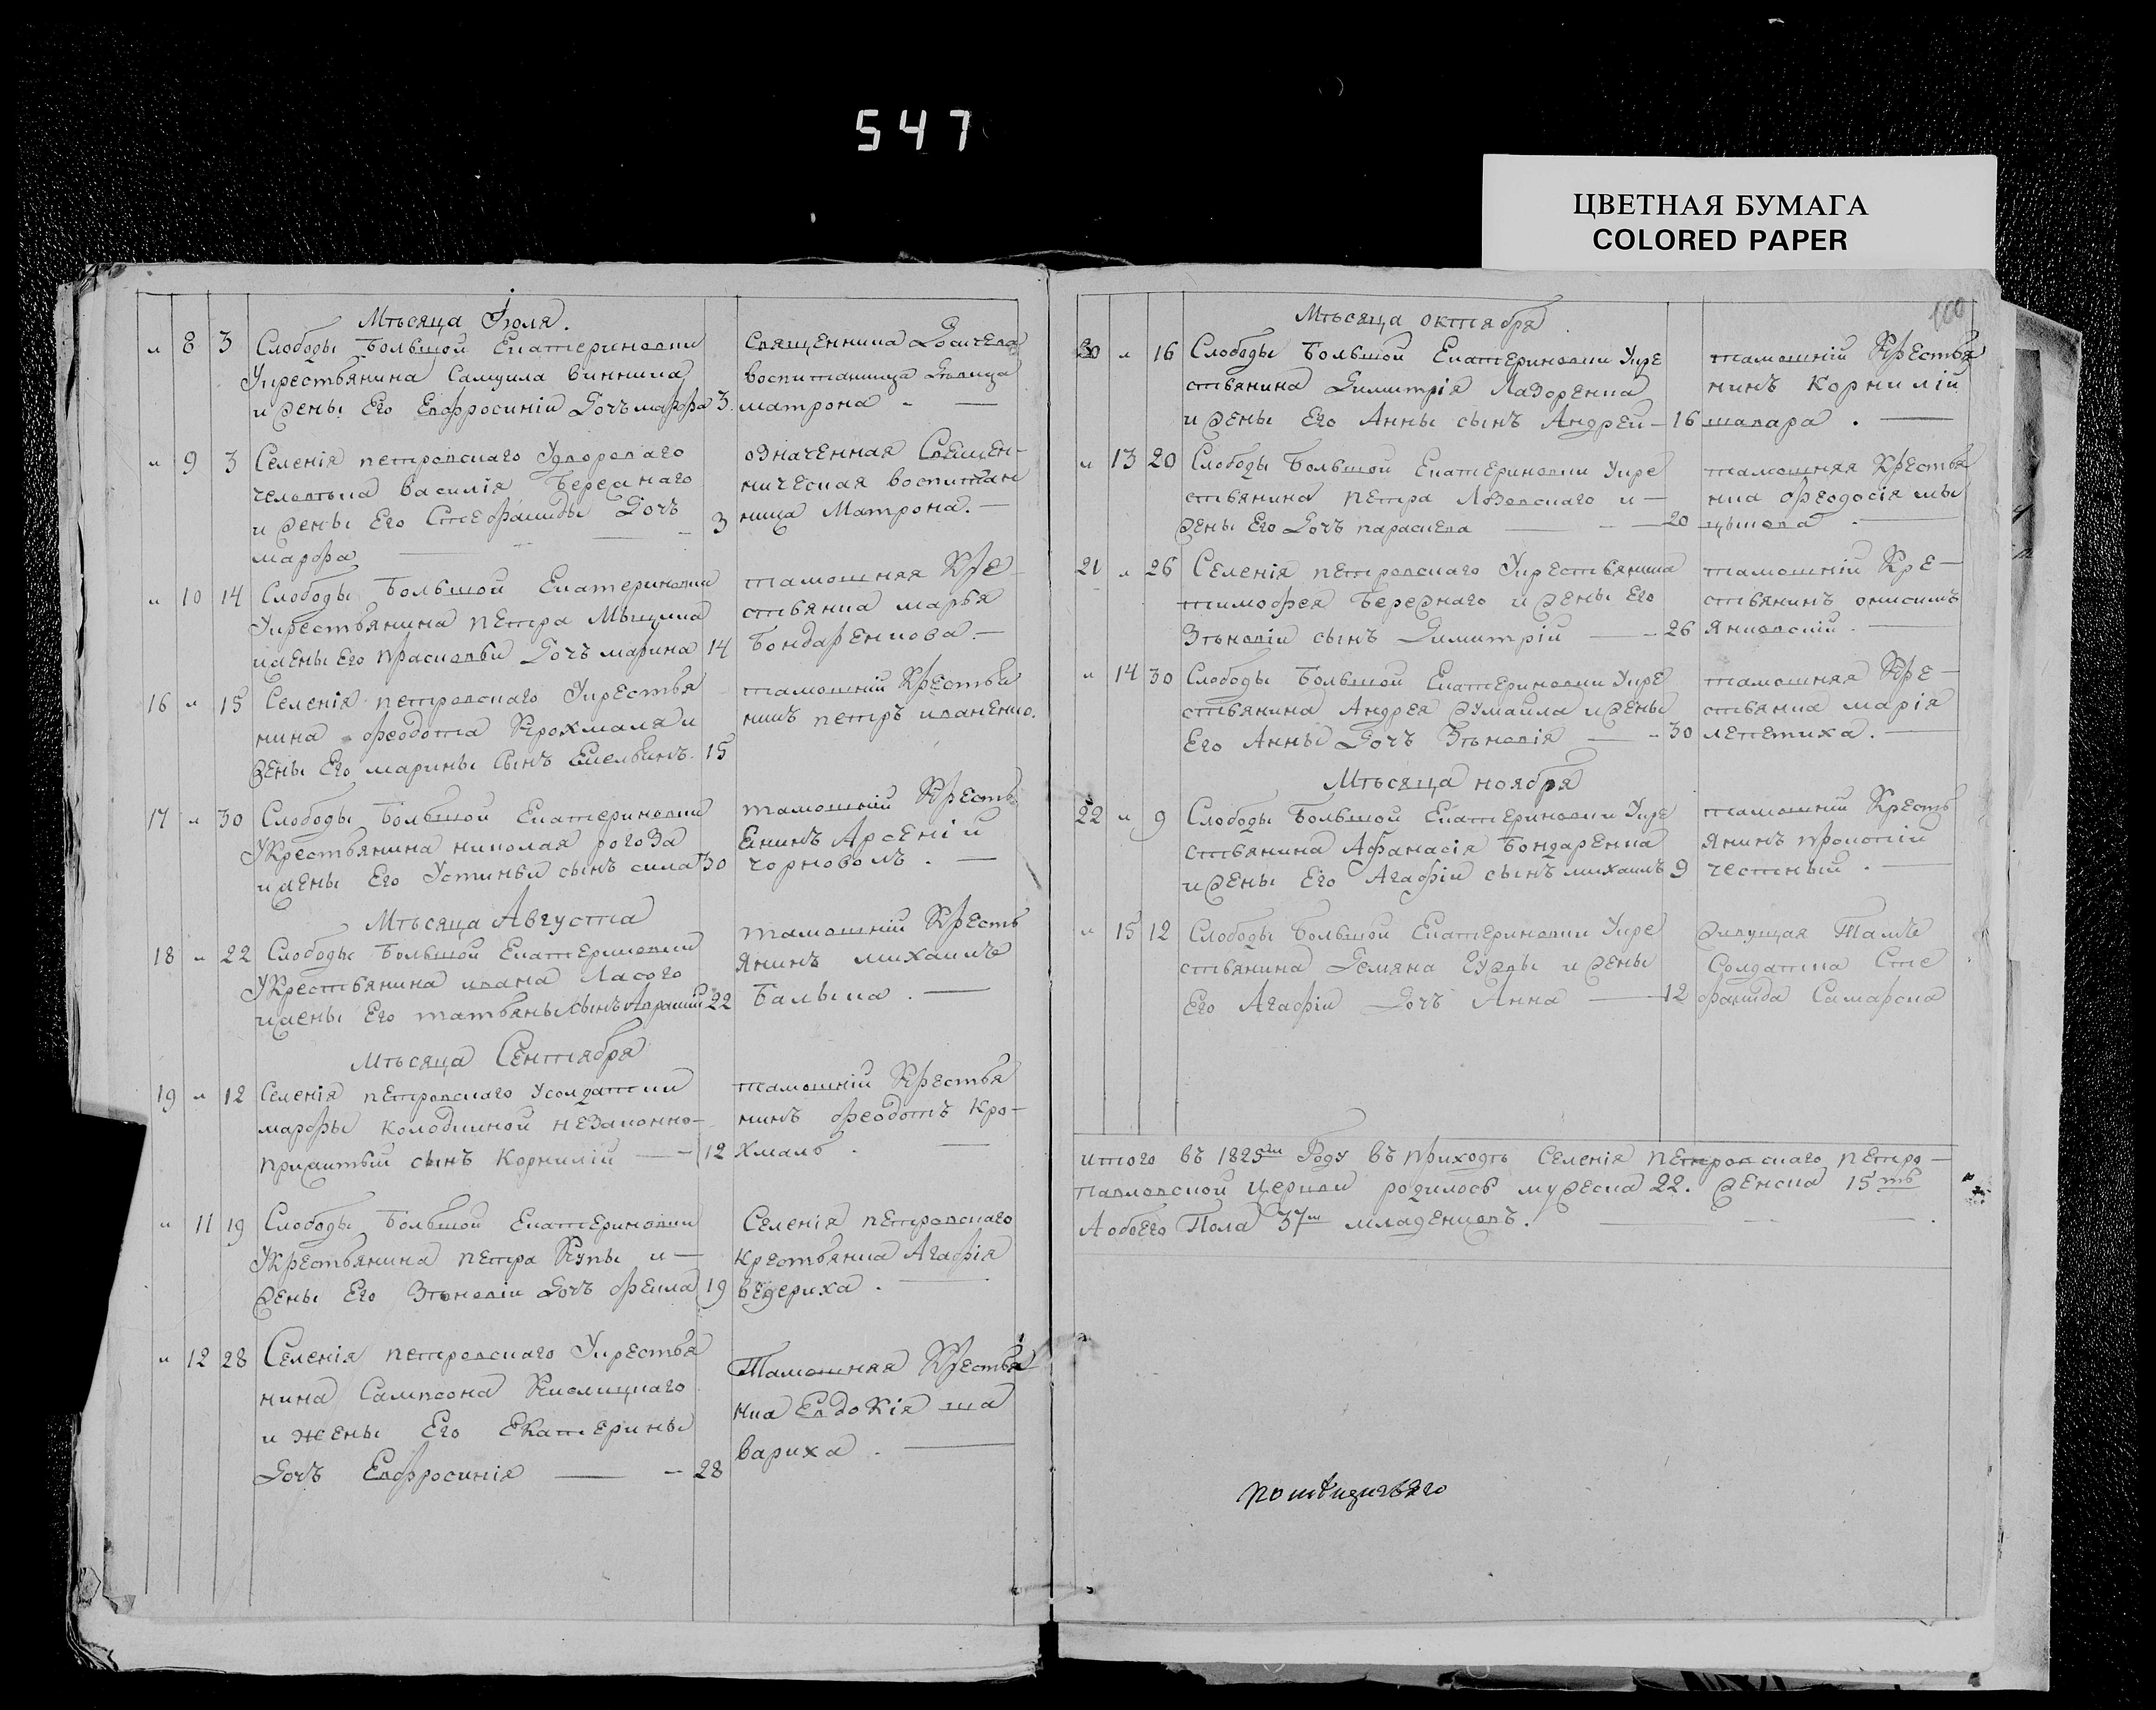 547
ЦВЕТНАЯ БУМАГА
COLORED PAPER
Мѣсяца Іюля.
„ 8 3 Слободы Большой Екатериновки
Укрестьянина Самуила Винника
и жены Его Евфросиніи Дочь марфа 3.
Священника Досичева
воспитанница Дѣвица
матрона -
„ 9 3 Селенія петровскаго Удвороваго
человѣка Василія Бережнаго
и жены Его Стефаниды Дочь 3
марфа
означенная Священ-
ническая воспитан
ница Матрона.
„ 10 14 Слободы Большой Екатериновки
Укрестьянина петра Мыцика
ижены Его прасковьи Дочь марина 14
тамошняя Кре-
стьянка марья
Бондаренкова.
16 „ 15 Селенія петровскаго Укрестья
нина феодота Крохмаля и
жены Его марины Сынъ Емельянъ. 15
тамошній Крестья
нинъ петръ иваненко.
17 „ 30 Слободы Большой Екатериновки
Укрестьянина николая рогоза
ижены Его Устиньи сынъ сила 30
тамошній Кресть
Янинъ Арсеній
чорноволъ.
Мѣсяца Августа
18 „ 22 Слободы Большой Екатериновки
Укрестьянина ивана Ласого
ижены Его татьяны сынъ Аврамій 22
тамошній Кресть
Янинъ михаилъ
Балыка.
Мѣсяца Сентября
19 „ 12 Селенія петровскаго Усолдатки
марфы колодкиной незаконно-
прижитый сынъ Корнилій 12
тамошній Крестья
нинъ феодотъ Кро-
хмаль.
„ 11 19 Слободы Большой Екатериновки
Укрестьянина петра Купы и
жены Его Зѣновіи Дочь фекла 19
Селенія петровскаго
крестьянка Агафія
ведериха.
„ 12 28 Селенія петровскаго Укрестья
нина Сампсона Кислицкаго
и жены Его Екатерины
Дочь Евфросинія 28
Тамошняя Крестья
нка Евдокія ша
вариха.
100
Мѣсяца октября
20 „ 16 Слободы Большой Екатериновки Укре
стьянина Димитрія Лазоренка
и жены Его Анны сынъ Андрей 16
тамошній Крестья
нинъ корнилій
шавара.
„ 13 20 Слободы Большой Екатериновки Укре
стьянина петра Лозовскаго и
жены Его Дочь параскева 20
тамошняя Крестья
нка феодосія мы
цыкова
21 „ 26 Селенія петровскаго Укрестьянина
тимофея Бережнаго и жены Его
Зѣновіи сынъ Димитрій 26
тамошній Кре-
стьянинъ онисимъ
янковскій.
„ 14 30 Слободы Большой Екатериновки Укре
стьянина Андрея жумайла и жены
Его Анны Дочь Зѣновія 30
тамошняя Кре-
стьянка марія
лепетиха.
Мѣсяца ноября
22 „ 9 Слободы Большой Екатериновки Укре
стьянина Афанасія Бондаренка
и жены Его Агафіи сынъ михаилъ 9
тамошній Кресть
янинъ прокопій
честный.
„ 15 12 Слободы Большой Екатериновки Укре
стьянина Демяна Гужвы и жены
Его Агафіи Дочь Анна 12
живущая Тамъ
Солдатка Сте
фанида Самарска
итого въ 1825м Году въ приходѣ Селенія петровскаго петро-
павловской Церкви родилось мужеска 22. женска 15ть
А обоего Пола 37м младенцовъ.